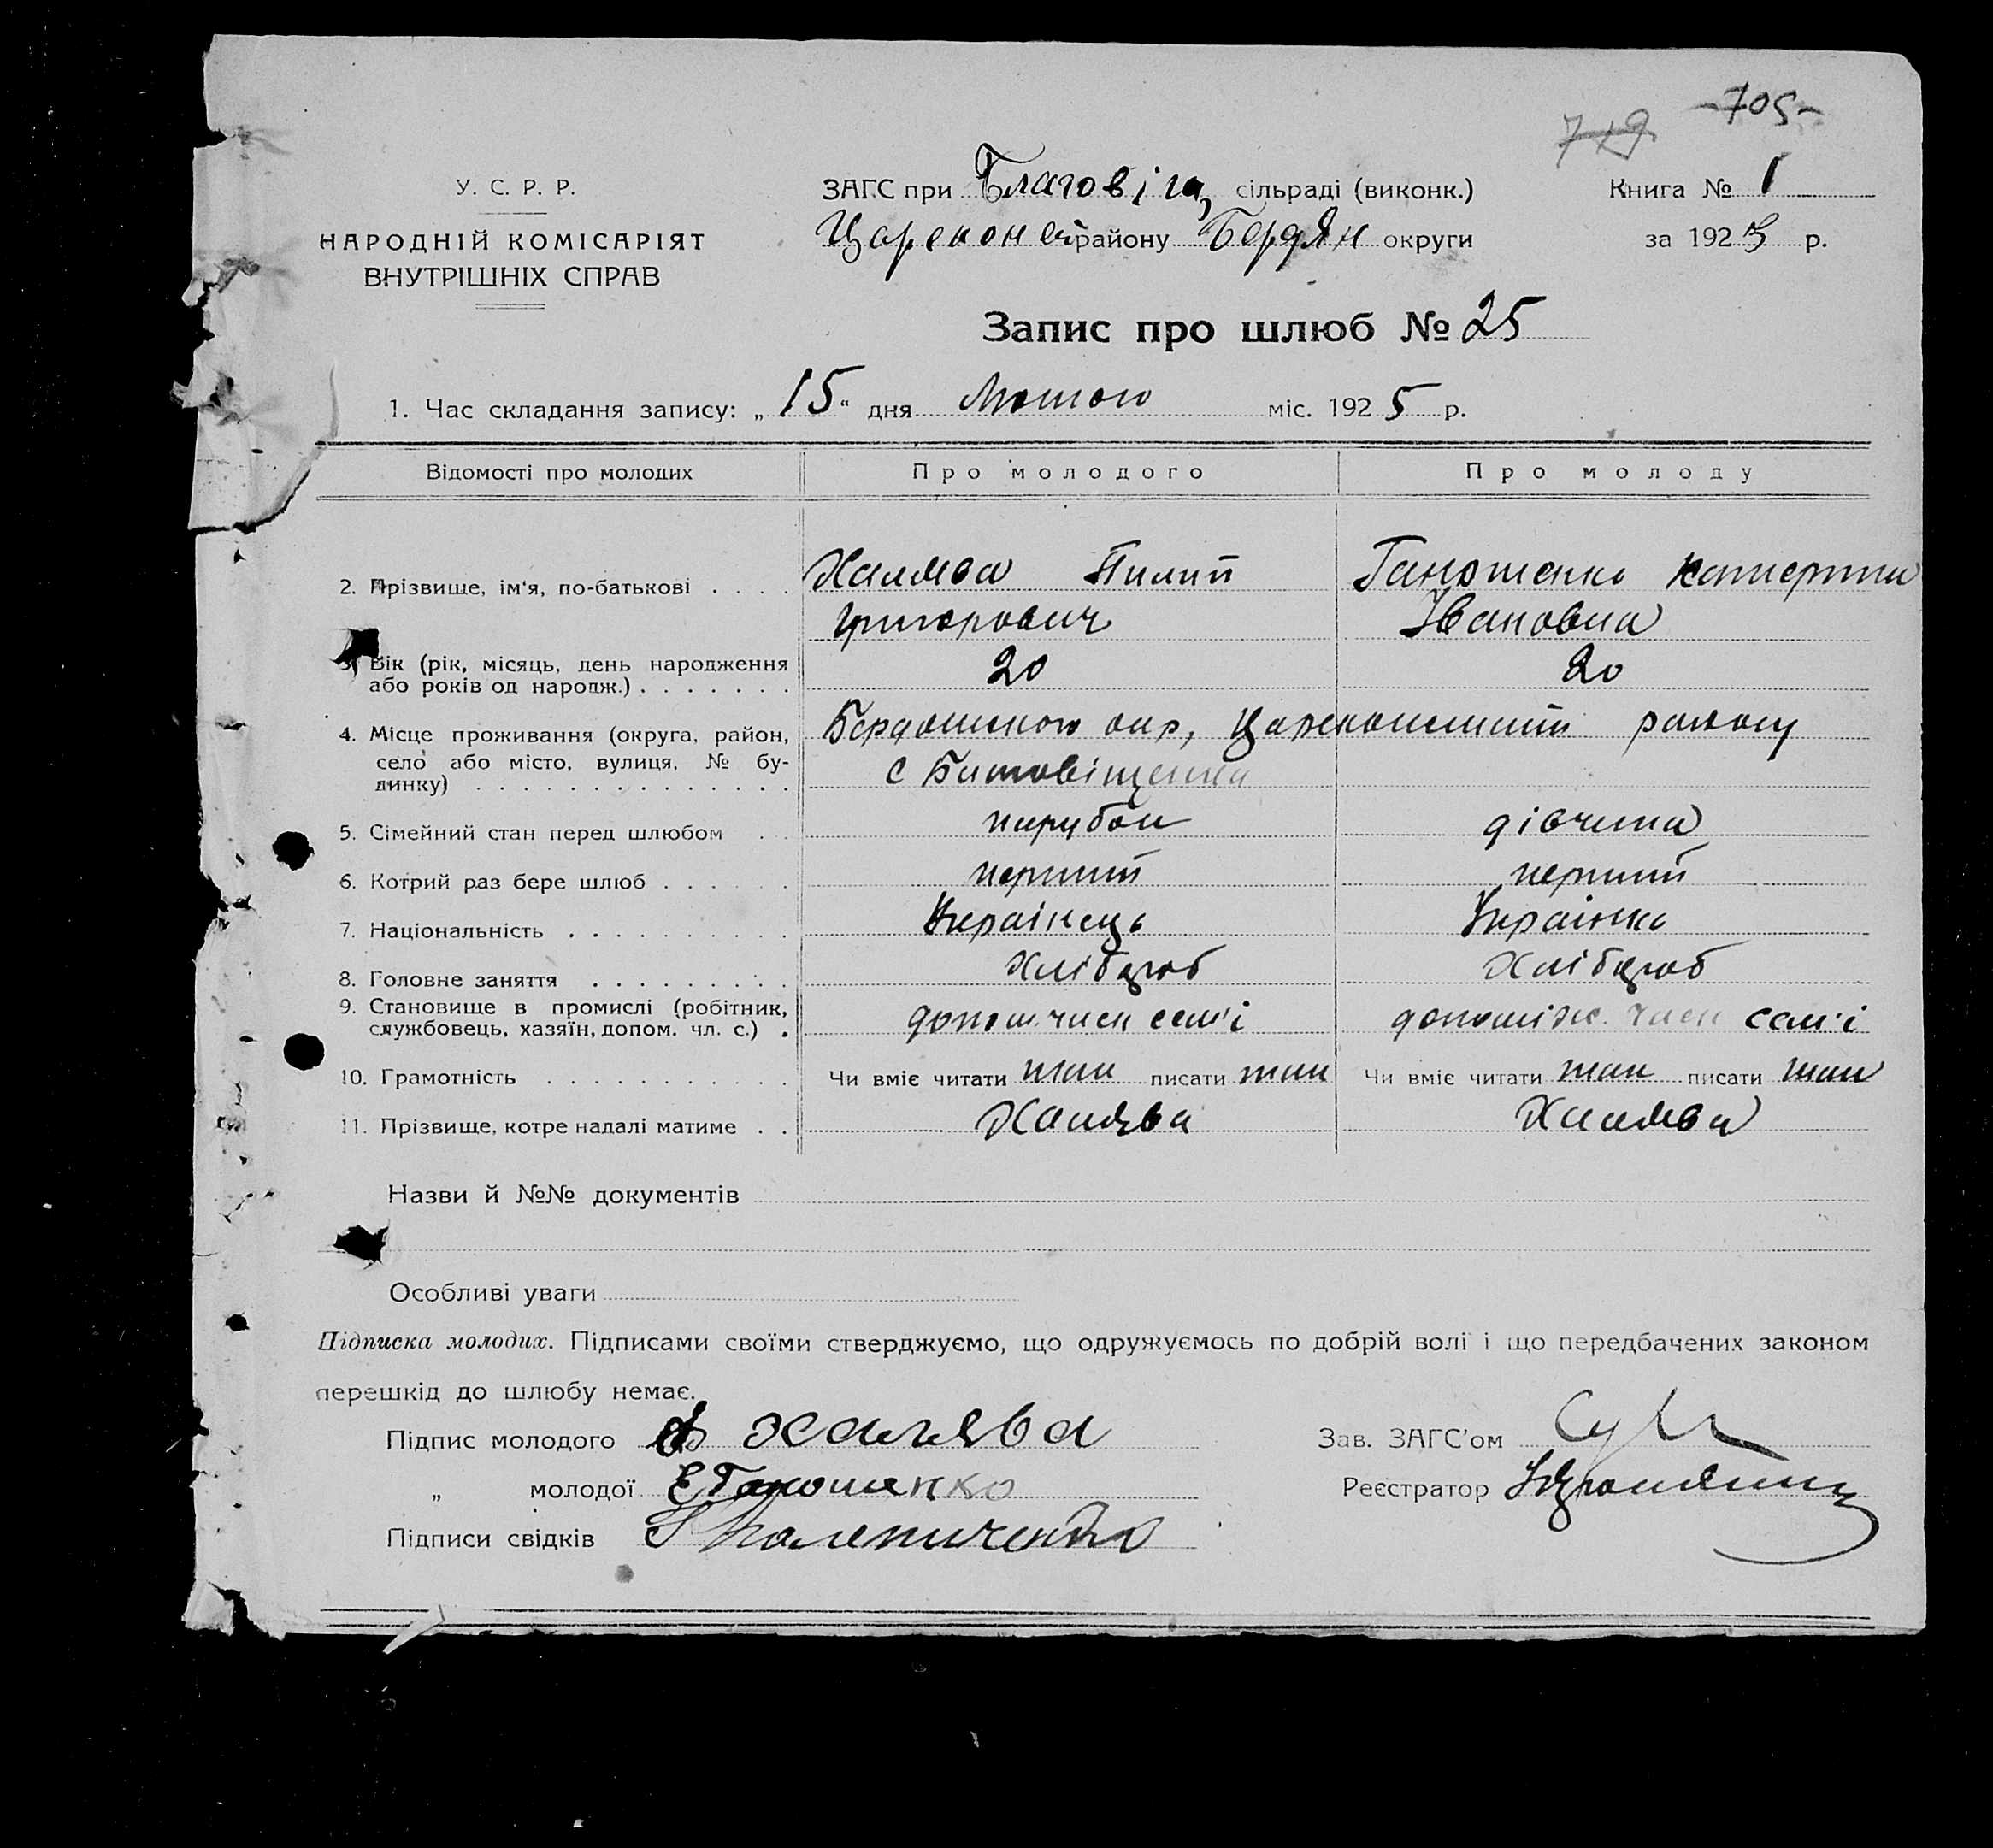 -705-
719
У. С. Р. Р.
НАРОДНІЙ КОМІСАРІЯТ
ВНУТРІШНІХ СПРАВ
ЗАГС при Благовіщ сільраді (виконк.)
Царекон району Бердян округи
Книга № 1
за 1925 р.
Запис про шлюб № 25
1. Час складання запису: „ 15 “ дня Лютого міс. 1925 р.
Відомості про молодих Про молодого Про молоду
2. Прізвище, ім'я, по-батькові . . . . Халява Пилип Ганюшенко Катерина
Григорович Івановна
3. Вік (рік, місяць, день народження
або років од народж.) . . . . . . . 20 20
4. Місце проживання (округа, район, Бердянського окр, Цареконский району
село або місто, вулиця, № бу-
динку) . . . . . . . . . . . . . . с Благовіщенка
5. Сімейний стан перед шлюбом . . парубок дівчина
6. Котрий раз бере шлюб . . . . . . перший перший
7. Національність . . . . . . . . . . Українець Українка
8. Головне заняття . . . . . . . . . Хлібороб Хлібороб
9. Становище в промислі (робітник,
службовець, хазяїн, допом. чл. с.) . допом. член сем'ї допоміж. член сем'ї
10. Грамотність . . . . . . . . . . . Чи вміє читати так писати так Чи вміє читати так писати так
11. Прізвище, котре надалі матиме . . Халява Халява
Назви й №№ документів
Особливі уваги
Підписка молодих. Підписами своїми стверджуємо, що одружуємось по добрій волі і що передбачених законом
перешкід до шлюбу немає.
Підпис молодого Ф Халява
Зав. ЗАГС'ом
„ молодої Е Ганошенко
Реєстратор
Підписи свідків